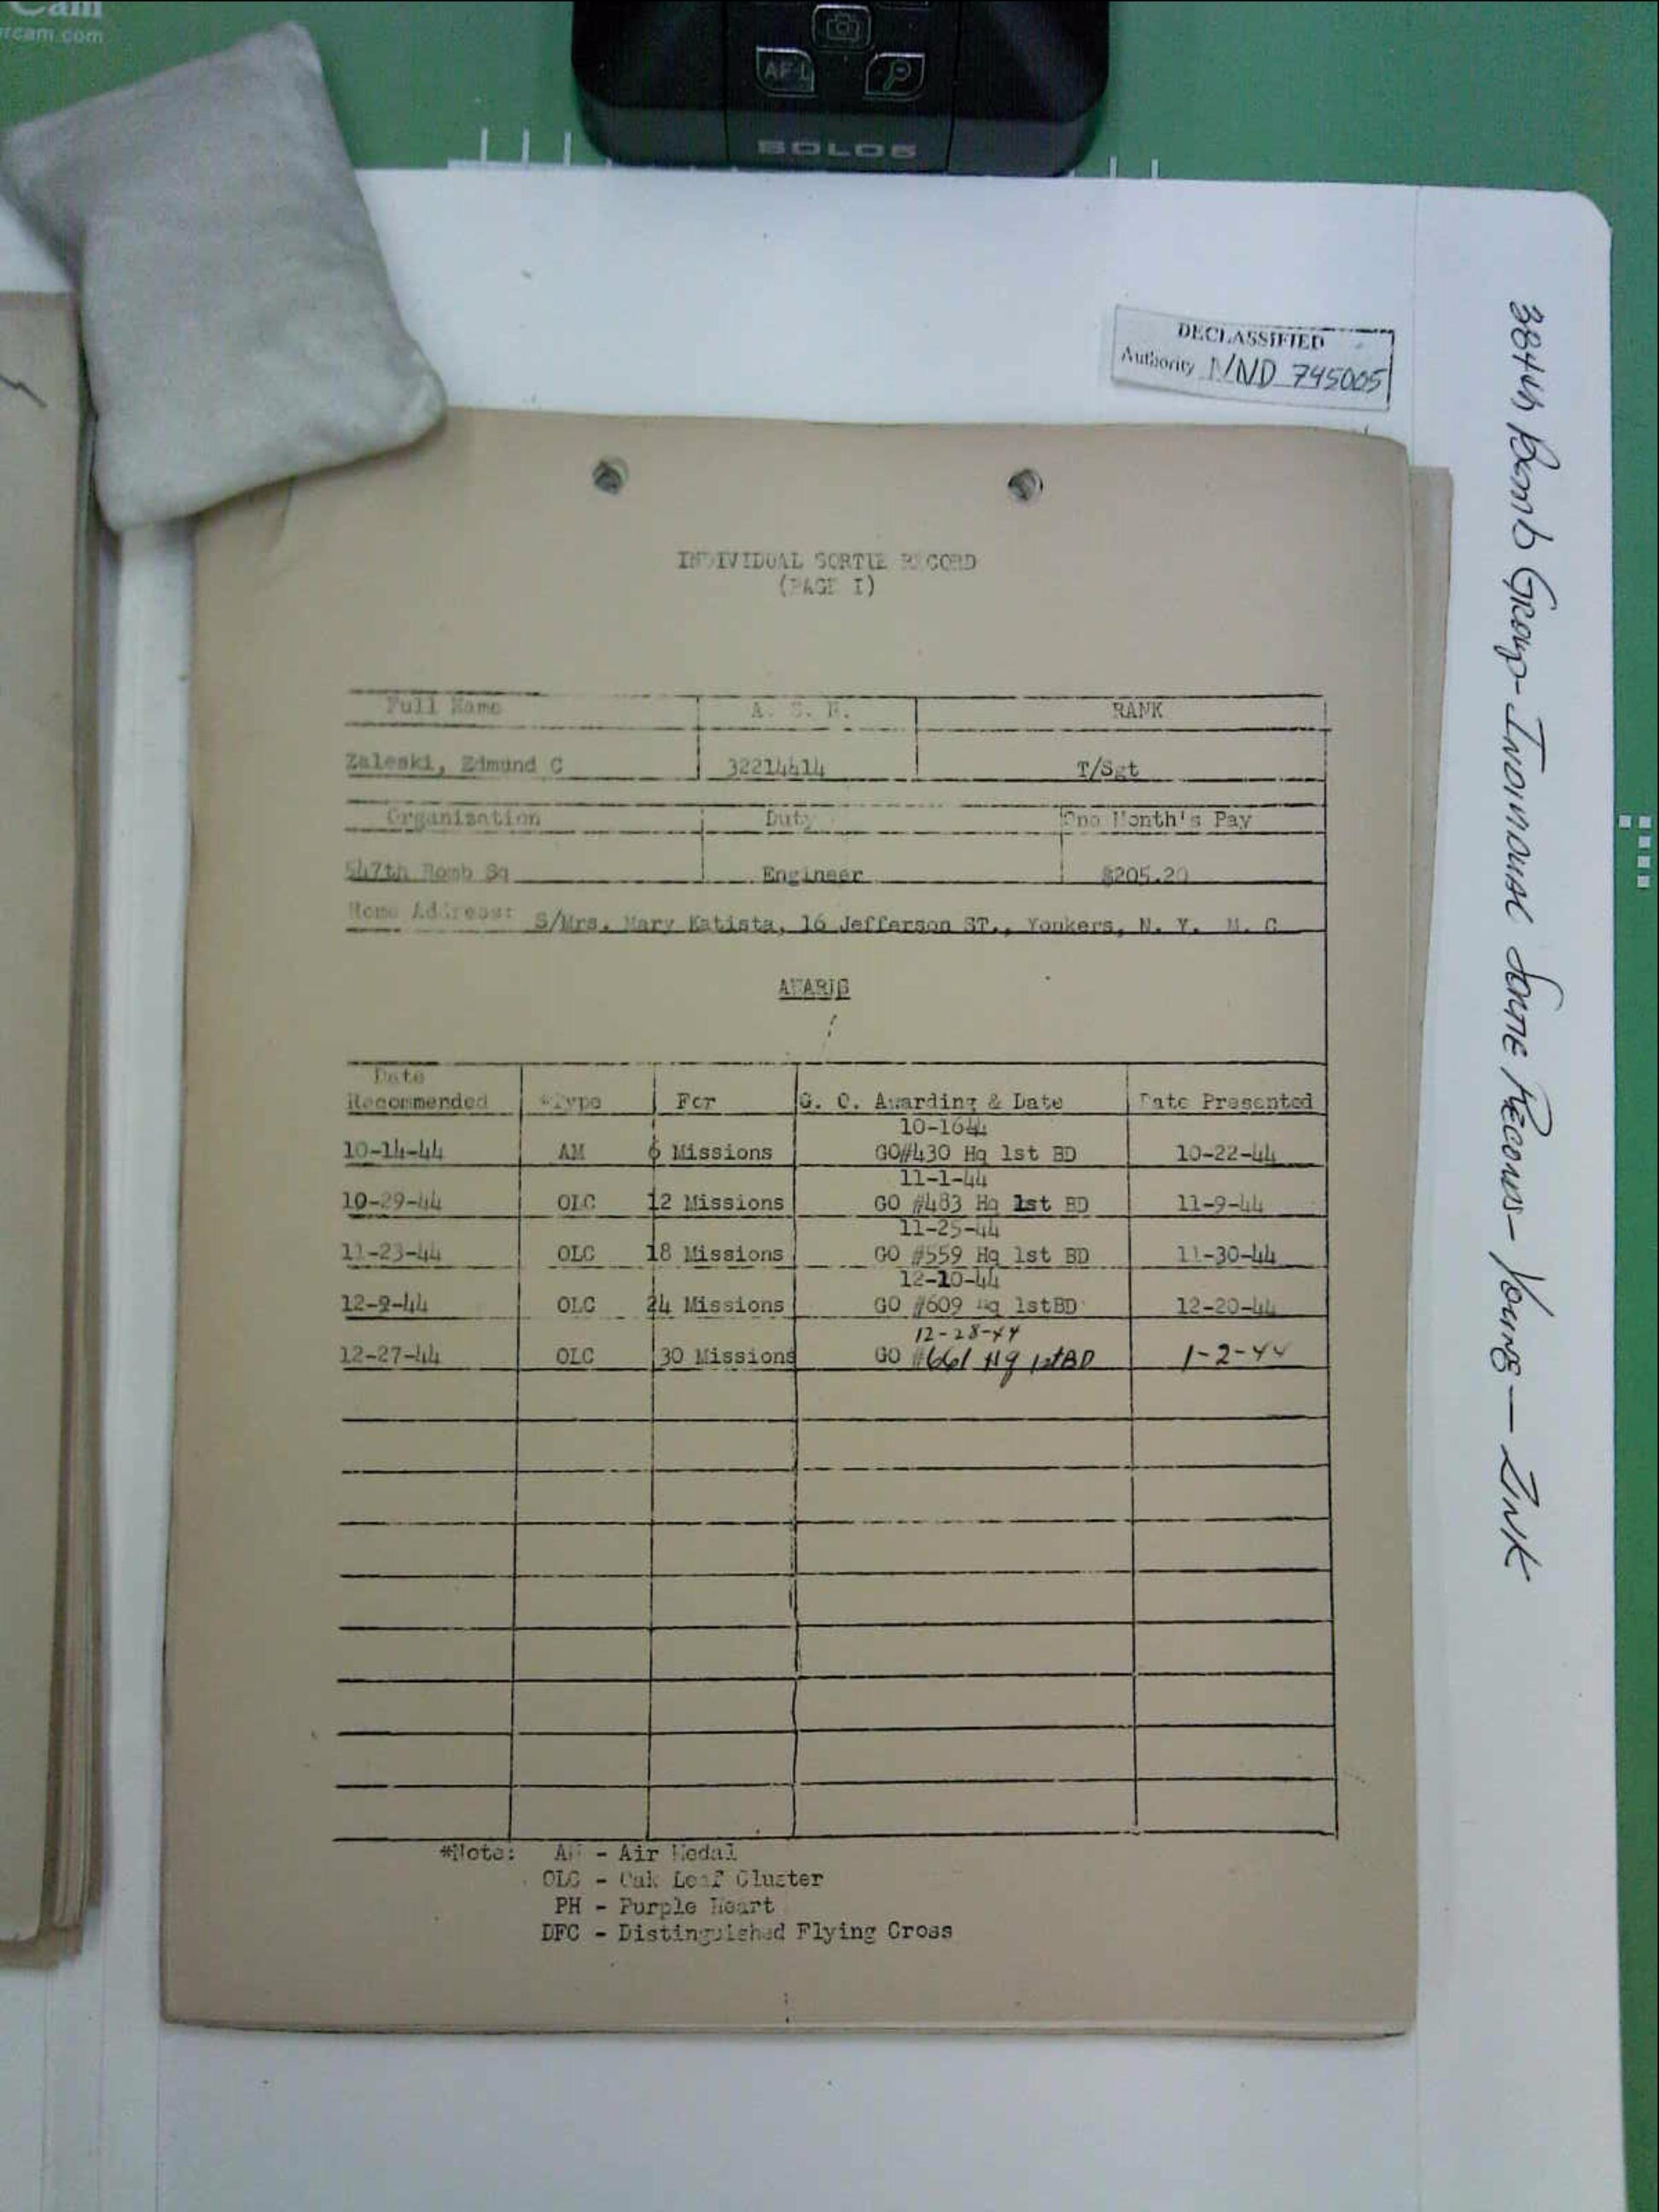 Cam
rcam.com
AF-L
SOLO8
DECLASSIFIED
Authority NND 745005
384th Bomb Group - Individual Sortie Records - Young — Zink
INDIVIDUAL SORTIE RECORD
(PAGE I)
Full Name A. S. N. RANK
Zaleski, Edmund C 32214614 T/Sgt
Organization Duty One Month's Pay
547th Bomb Sq Engineer $205.20
Home Address: S/Mrs. Mary Katista, 16 Jefferson ST., Yonkers, N. Y. N. C
AWARDS
Date
Recommended *Type For G. O. Awarding & Date Date Presented
10-1644
10-14-44 AM 6 Missions GO#430 Hq 1st BD 10-22-44
11-1-44
10-29-44 OLC 12 Missions GO #483 Hq 1st BD 11-9-44
11-25-44
11-23-44 OLC 18 Missions GO #559 Hq 1st BD 11-30-44
12-10-44
12-9-44 OLC 24 Missions GO #609 Hq 1stBD 12-20-44
12-28-44
12-27-44 OLC 30 Missions GO #661 Hq 1stBD 1-2-44
*Note: AM - Air Medal
OLC - Oak Leaf Cluster
PH - Purple Heart
DFC - Distinguished Flying Cross